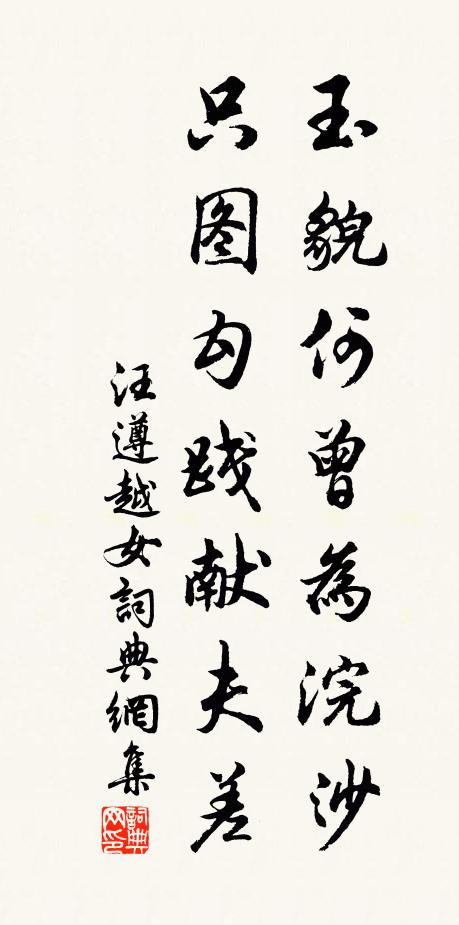 玉貌何曾為浣沙
只图勾踐献夫差
汪遵越女詞典網集
詞典网印